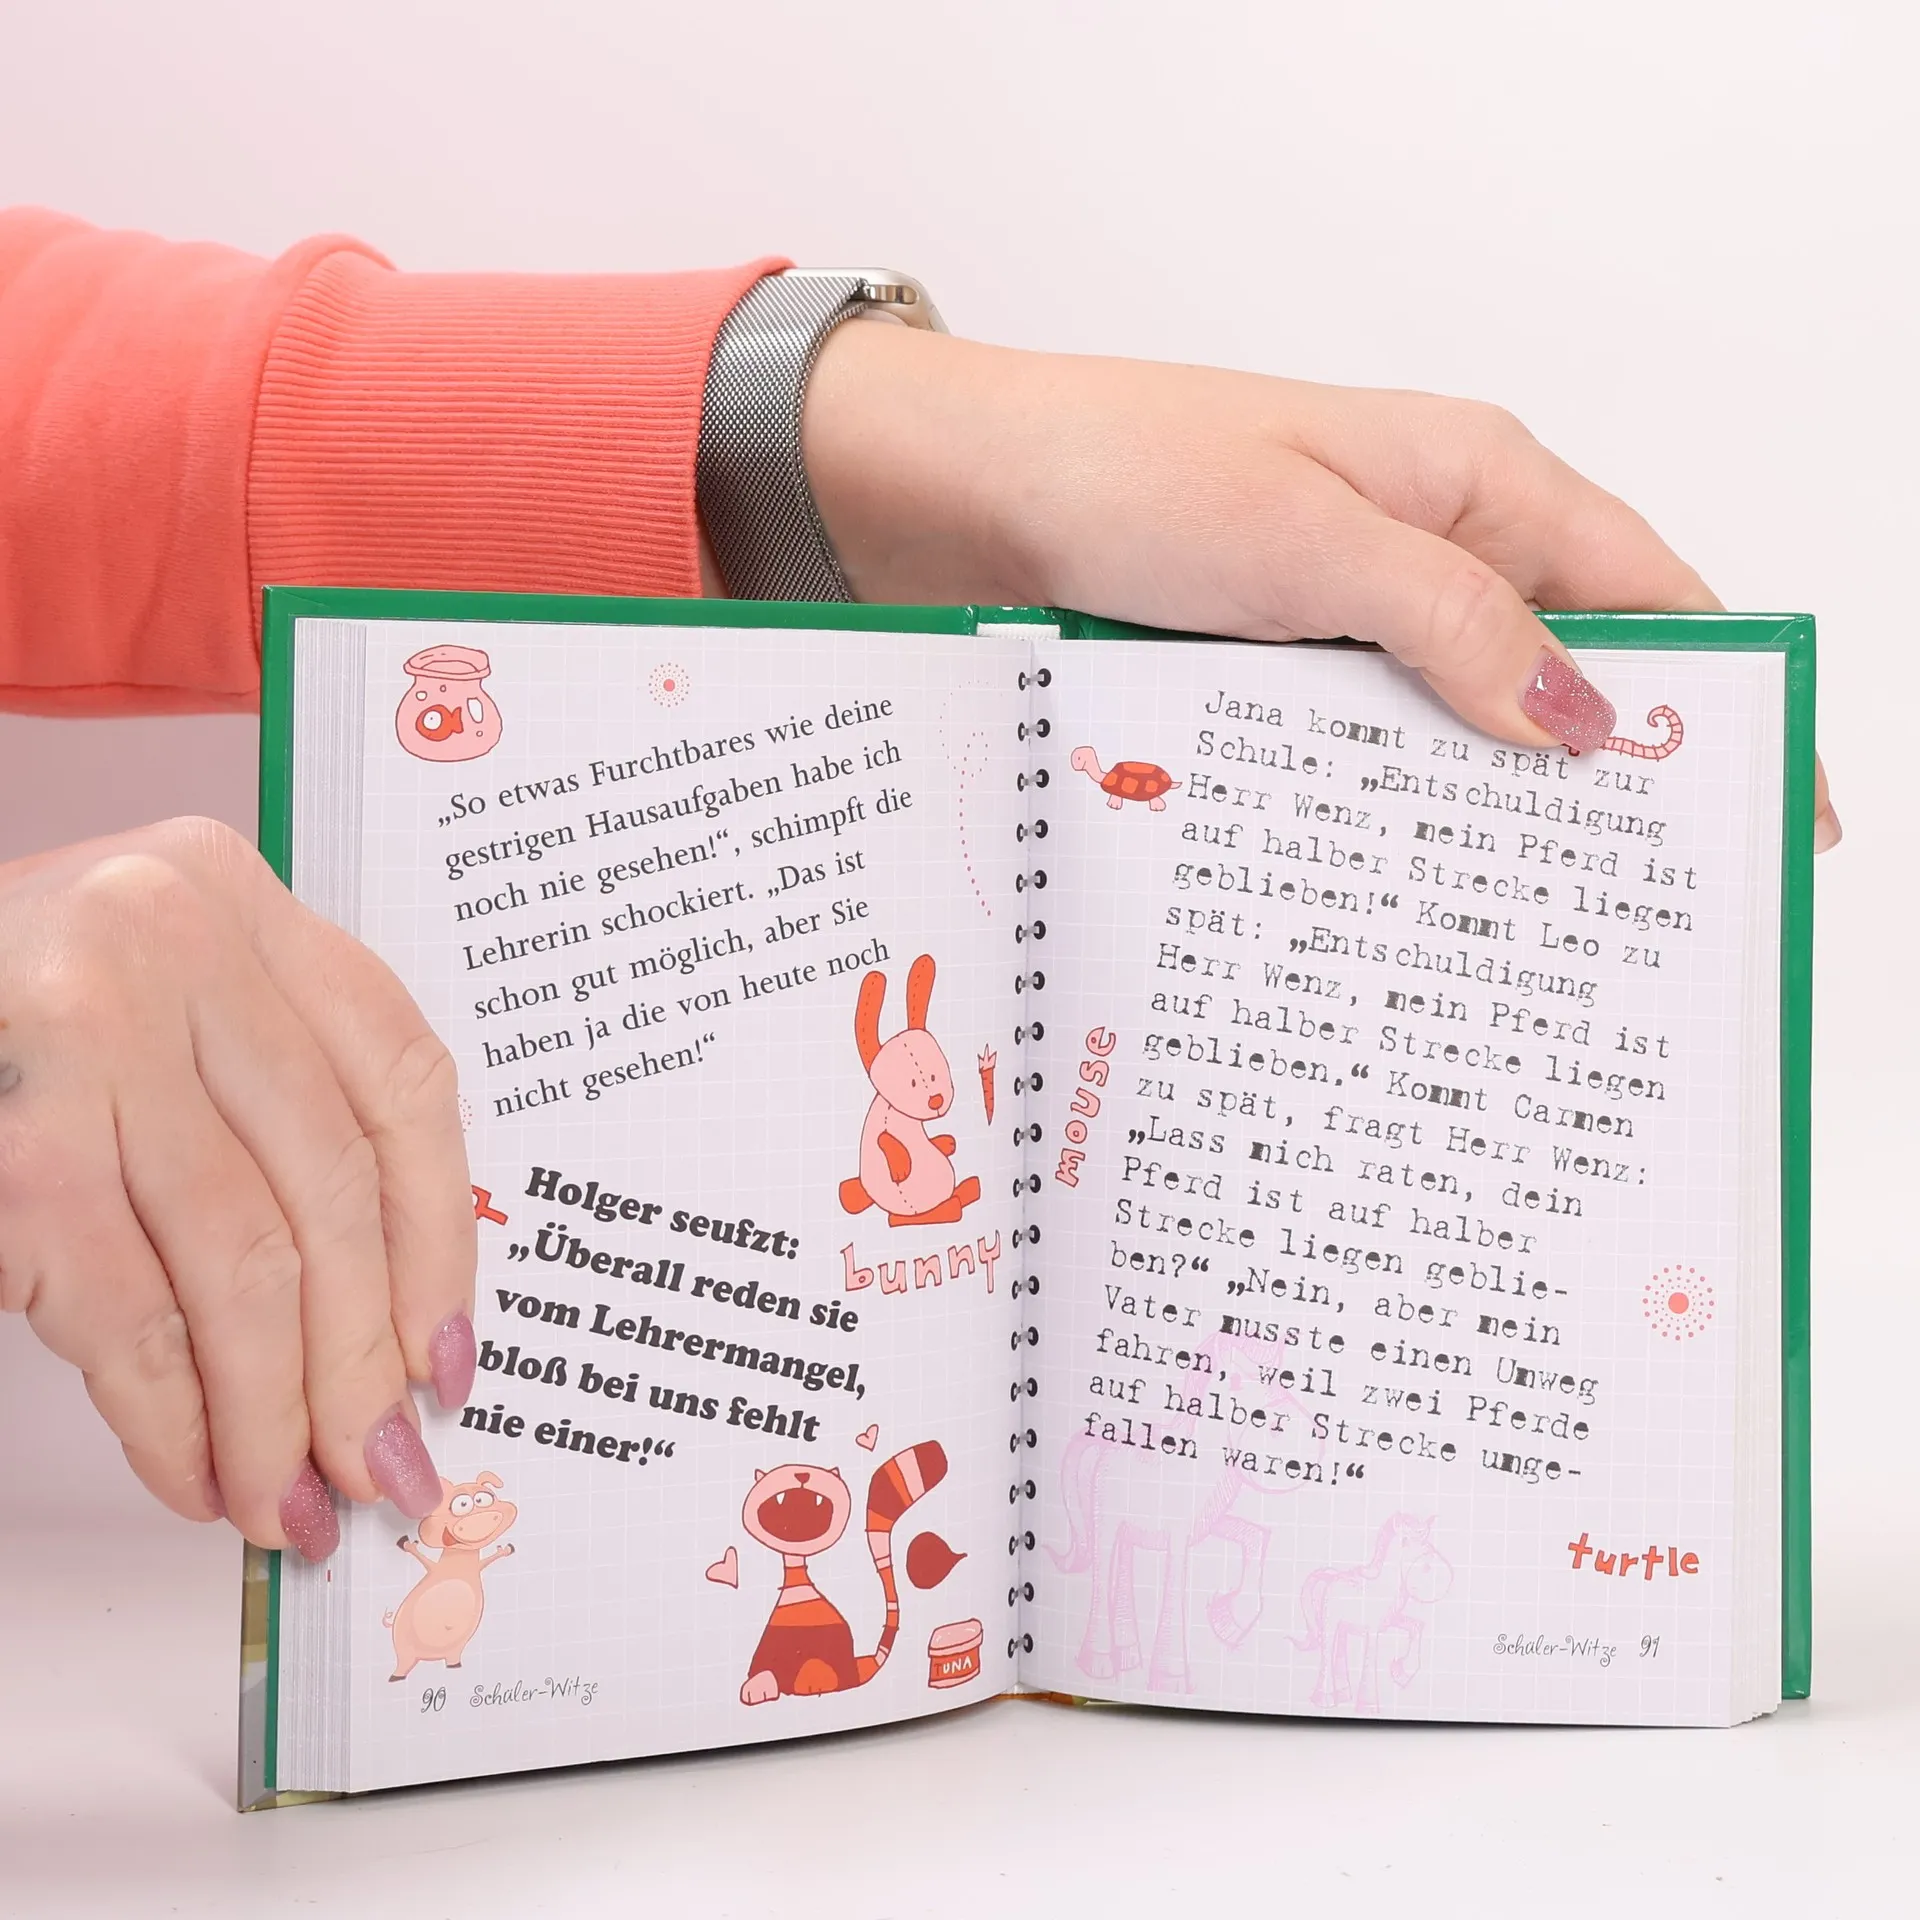 „So etwas Furchtbares wie deine
gestrigen Hausaufgaben habe ich
noch nie gesehen!“, schimpft die
Lehrerin schockiert. „Das ist
schon gut möglich, aber Sie
haben ja die von heute noch
nicht gesehen!“
bunny
Holger seufzt:
„Überall reden sie
vom Lehrermangel,
bloß bei uns fehlt
nie einer!“
TUNA
90 Schüler-Witze
Jana kommt zu spät zur
Schule: „Entschuldigung
Herr Wenz, mein Pferd ist
auf halber Strecke liegen
geblieben!“ Kommt Leo zu
spät: „Entschuldigung
Herr Wenz, mein Pferd ist
auf halber Strecke liegen
geblieben.“ Kommt Carmen
zu spät, fragt Herr Wenz:
„Lass mich raten, dein
Pferd ist auf halber
Strecke liegen geblie-
ben?“ „Nein, aber mein
Vater musste einen Umweg
fahren, weil zwei Pferde
auf halber Strecke umge-
fallen waren!“
mouse
turtle
Schüler-Witze 91